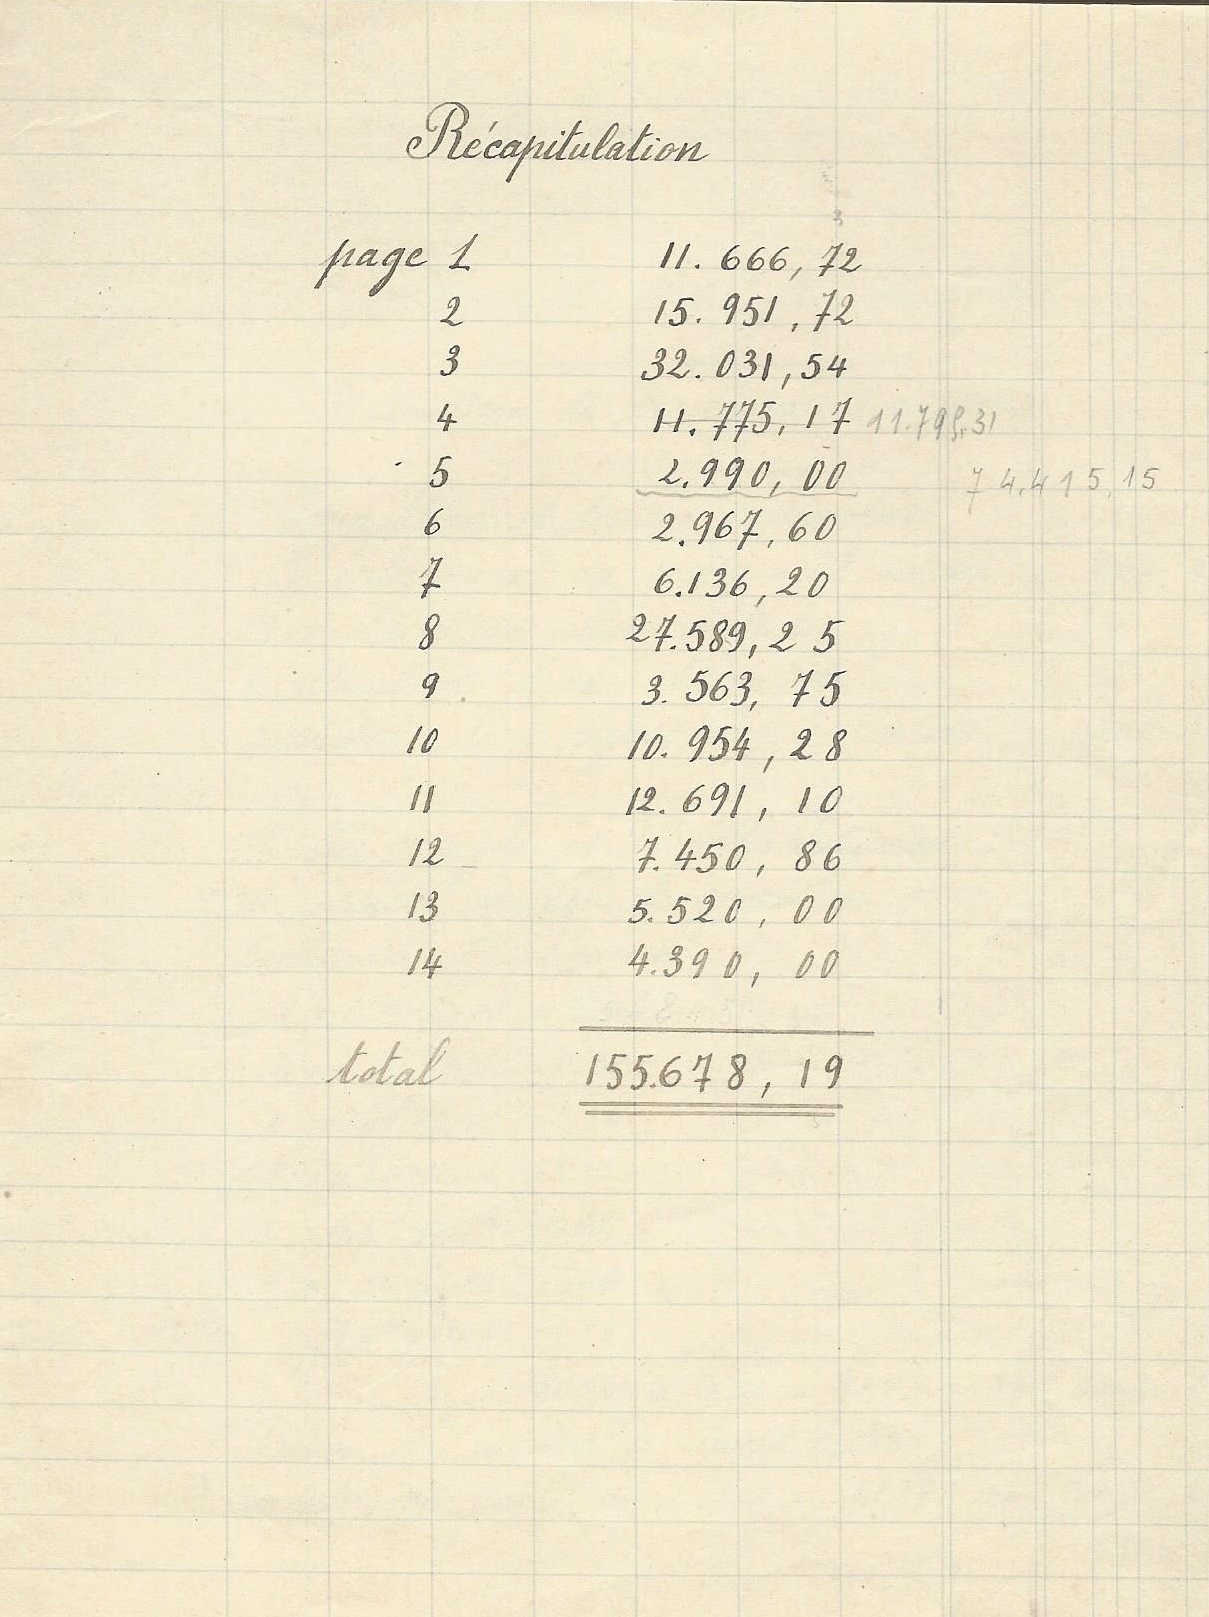 Récapitulation
page 1 11.666,72
2 15.951,72
3 32.031,54
4 11.775,17
5 2.990,00 74.415,15
6 2.967,60
7 6.136,20
8 27.589,25
9 3.563,75
10 10.954,28
11 12.691,10
12 7.450,86
13 5.520,00
14 4.390,00
total 155.678,19